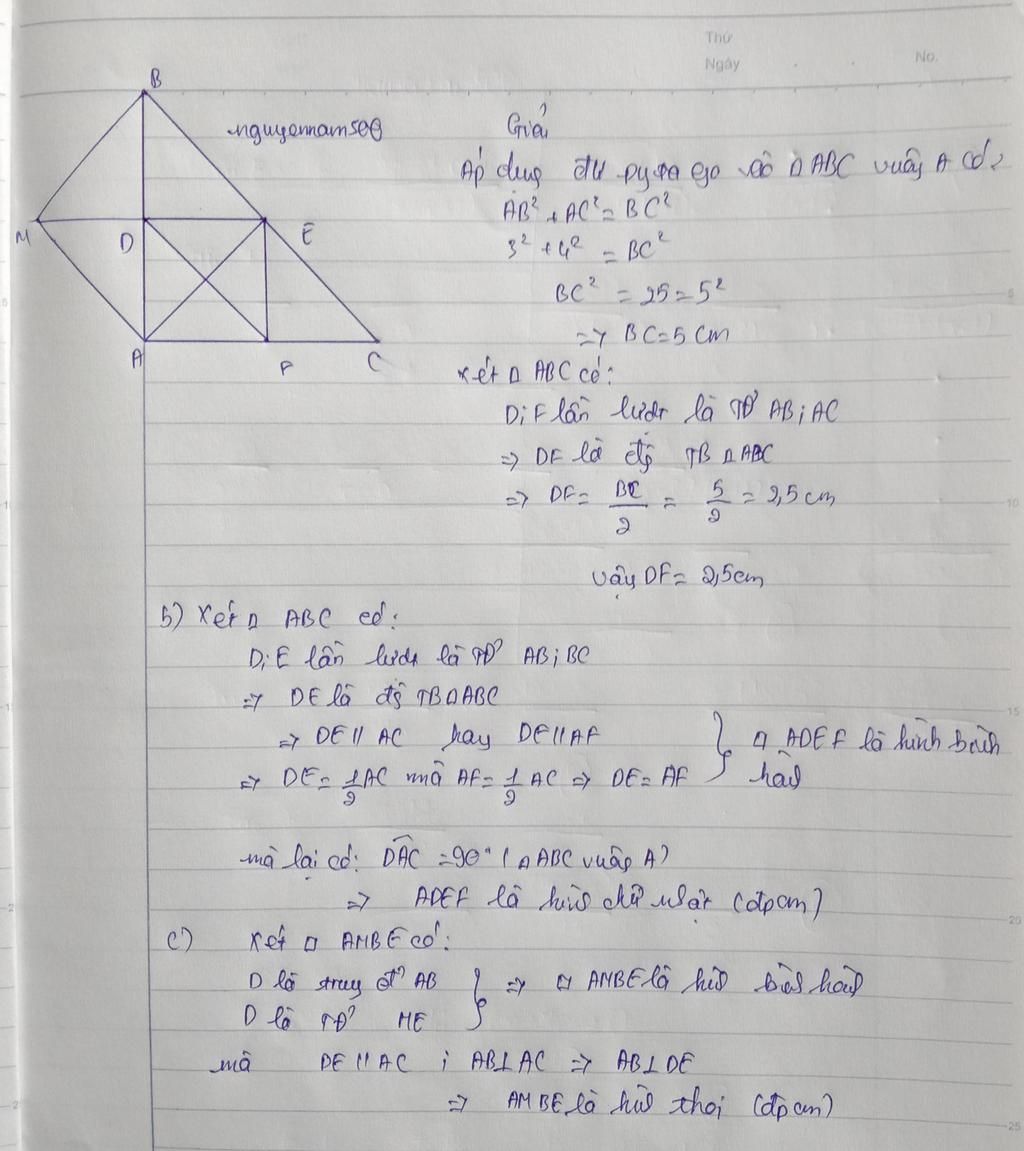 Thứ
Ngày
No.
B
nguyennam509
M
D
E
A
F
C
Giải
Áp dụng đlí pytago vào Δ ABC vuông A có:
AB² + AC² = BC²
3² + 4² = BC²
BC² = 25 = 5²
=> BC = 5 cm
Xét Δ ABC có:
D; F lần lượt là TĐ AB; AC
=> DF là đg TB Δ ABC
=> DF = BC/2 = 5/2 = 2,5 cm
Vậy DF = 2,5cm
b) Xét Δ ABC có:
D; E lần lượt là TĐ AB; BC
=> DE là đg TB Δ ABC
=> DE // AC hay DE // AF
=> DE = 1/2 AC mà AF = 1/2 AC => DE = AF } □ ADEF là hình bình hàh
mà lại có: DAC = 90° (Δ ABC vuông A)
=> ADEF là hìh chữ nhật (đpcm)
c) Xét □ AMBE có:
D là trung đ' AB
D là TĐ ME } => □ AMBE là hìh bìh hàh
mà DE // AC ; AB ⊥ AC => AB ⊥ DE
=> AMBE là hìh thoi (đpcm)
5
10
15
20
25